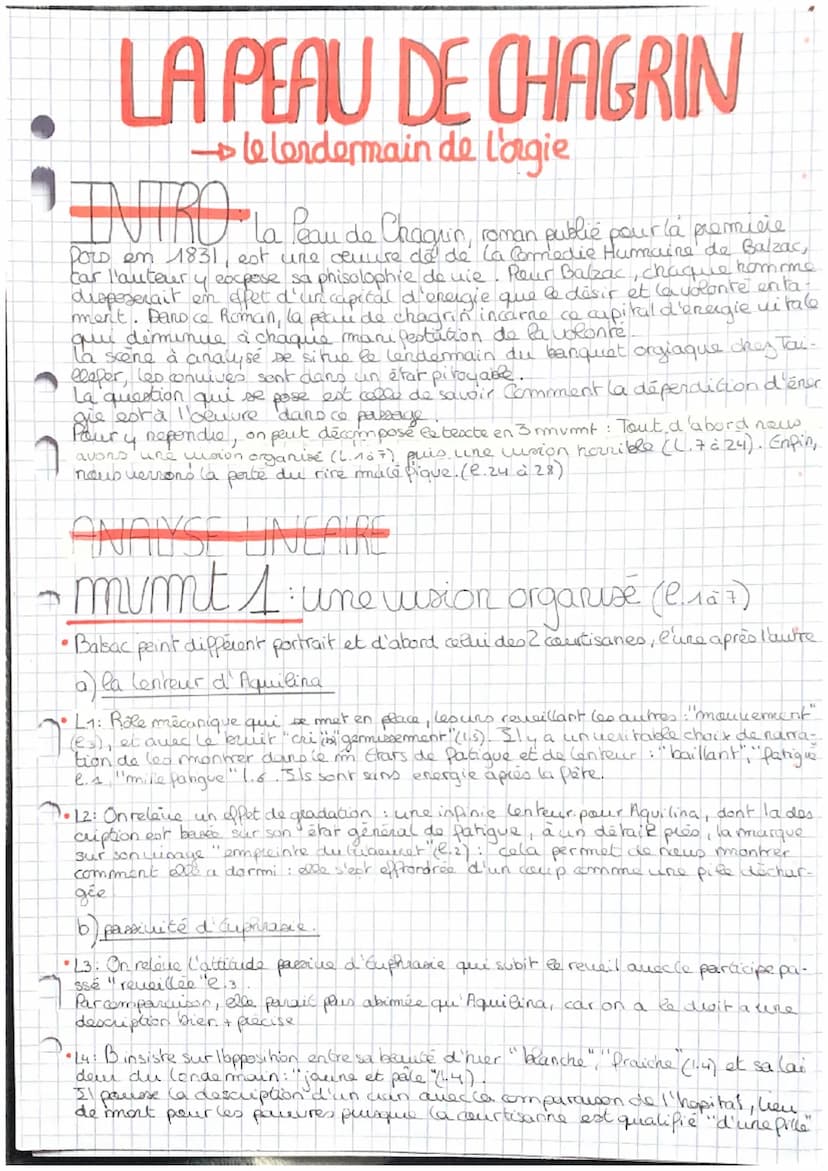 LA PEAU DE CHAGRIN
→ le lendermain de l'orgie
INTRO: La Peau de Chagrin, roman publié pour la première
fois em 1831, est une oeuvre clé de La Comédie Humaine de Balzac,
car l'auteur y expose sa phisolophie de vie. Pour Balzac, chaque homme
disposerait em effet d'un capital d'energie que le désir et la volonté enta-
ment. Dans ce Roman, la peau de chagrin incarne ce capital d'énergie vitale
qui diminue à chaque manifestation de la volonté.
La scène à analysé se situe le lendermain du banquet orgiaque chez Tai-
llefer, les convives sont dans un état pitoyable.
La question qui se pose est celle de savoir Comment la déperdition d'éner
gie est à l'oeuvre dans ce passage.
Pour y repondre, on peut décomposé le texte en 3 mvmt : Tout d'abord nous
avons une vision organisé (L.1 à 7), puis une vision horrible (L.7 à 24). Enfin,
nous verrons la porté du rire maléfique. (l.24 à 28)
ANALYSE LINEAIRE
mvmt 1 : une vision organisé (l.1 à 7)
• Balsac peint différent portrait et d'abord celui des 2 courtisanes, l'une après l'autre
a) la lenteur d'Aquilina
• L1: Rôle mécanique qui se met en place, les uns reveillant les autres : "mouvement"
(l.3), et avec le bruit "cri" "gemissement" (l.5). Il y a un veritable choix de narra-
tion de les montrer dans le m états de fatigue et de lenteur : "baillant", "fatigué
l.1, "mille fatigue" l.6. Ils sont sans energie après la fête.
• L2: On relève un effet de gradation : une infinie lenteur pour Aquilina, dont la des
cription est basée sur son état général de fatigue, à un détail près, la marque
sur son visage "empreinte du (l.2) : cela permet de nous montrer
comment elle a dormi : elle s'est effondrée d'un coup comme une pile déchar-
gée
b) passivité d'Euphrasie.
• L3: On relève l'attitude passive d'Euphrasie qui subit le reveil avec le participe pa-
ssé "reveillée" l.3.
Par comparaison, elle parait plus abimée qu'Aquilina, car on a le droit a une
description bien + précise
• L4: B insiste sur l'opposition entre sa beauté d'hier "blanche", "fraiche" (l.4) et sa lai
deur du lendemain : "jaune et pâle" (l.4).
Il pousse la description d'un cran avec la comparaison de l'hopital, lieu
de mort pour les pauvres puisque la courtisanne est qualifié "d'une fille"